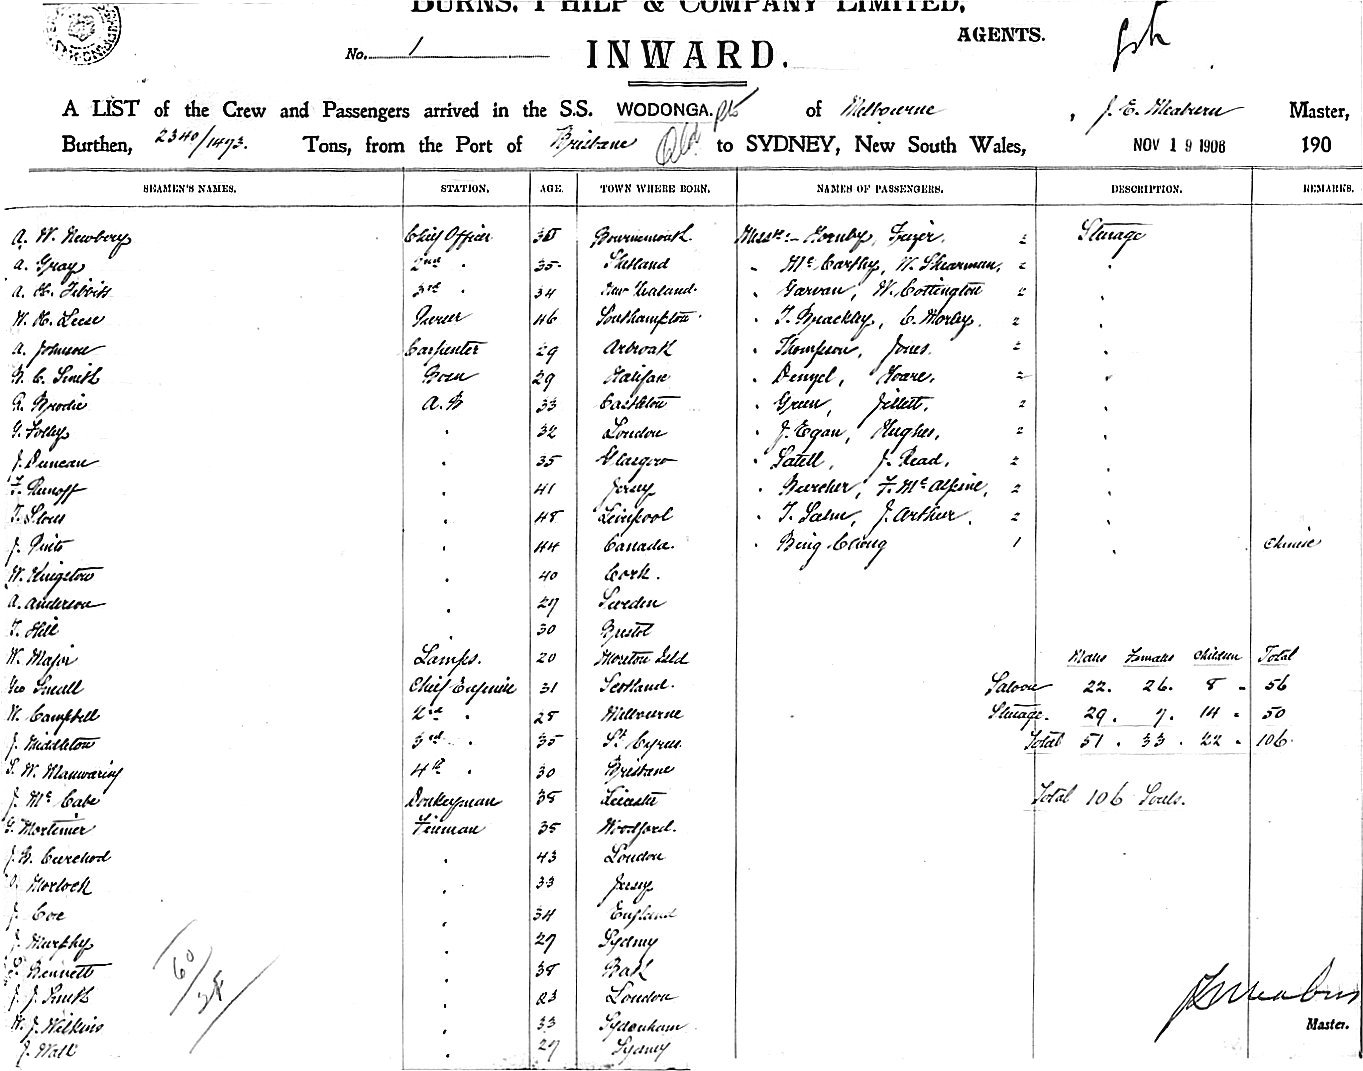 BURNS, PHILP & COMPANY LIMITED,
AGENTS.
No. 1
INWARD.
A LIST of the Crew and Passengers arrived in the S.S. WODONGA. of Melbourne, J. E. Meaburn Master,
Burthen, 2340/1473. Tons, from the Port of Brisbane to SYDNEY, New South Wales, NOV 19 1906 190
SEAMEN'S NAMES. STATION. AGE. TOWN WHERE BORN. NAMES OF PASSENGERS. DESCRIPTION. REMARKS.
A. W. Newbery Chief Officer Bournemouth Messrs:- Hornby, Fryer. 2 Steerage
A. Gray 2nd " 35 Shetland " McCarthy, W. Shearman, 2 "
A. H. Tibbits 3rd " 34 New Zealand. " Garvan, W. Cottington 2 "
W. H. Leese Purser 46 Southampton " T. Brackley, C. Morley. 2 "
A. Johnson Carpenter 29 Arbroath " Thompson, Jones. 2 "
C. Smith Bosn 29 Halifax " Denyel, Hoare, 2 "
Brodie A.B 33 Castleton " Green, Jillett, 2 "
G. Folley " 32 London " J. Egan, Hughes, 2 "
J. Duncan " 35 Glasgow " J. Read, 2 "
" 41 Jersey " Burcher, F. McAlpine, 2 "
" 48 Liverpool " T. J. Arthur. 2 "
J. " 44 Canada. " Bing Chong 1 " Chinese
W. Kingston " 40 Cork.
A. Anderson " 27 Sweden
T. Hill 30 Bristol
W. Major Lamps. 20 Moreton Males Females Children Total
Geo Small Chief Engineer 31 Scotland. Saloon 22. 26. 8 - 56
W. Campbell 2nd " 28 Melbourne Steerage. 29. 7. 14 - 50
J. Middleton 3rd " 35 St Cyrus Total 51. 33. 22 - 106.
S. W. Manwaring 4th " 30 Brisbane
J. McCabe Donkeyman 38 Leicester Total 106 Souls.
G. Mortimer Fireman 35 Woodford.
J. B. Curchod " 43 London
Morlock " 33 Jersey
J. Coe " 34 England
J. Murphy " 27 Sydney
Bennett " 38 Bath
J. J. Smith " 23 London
W. J. Wilkins " 33 Sydenham
J. Wall " 27 Sydney
60/38
J E Meaburn
Master.